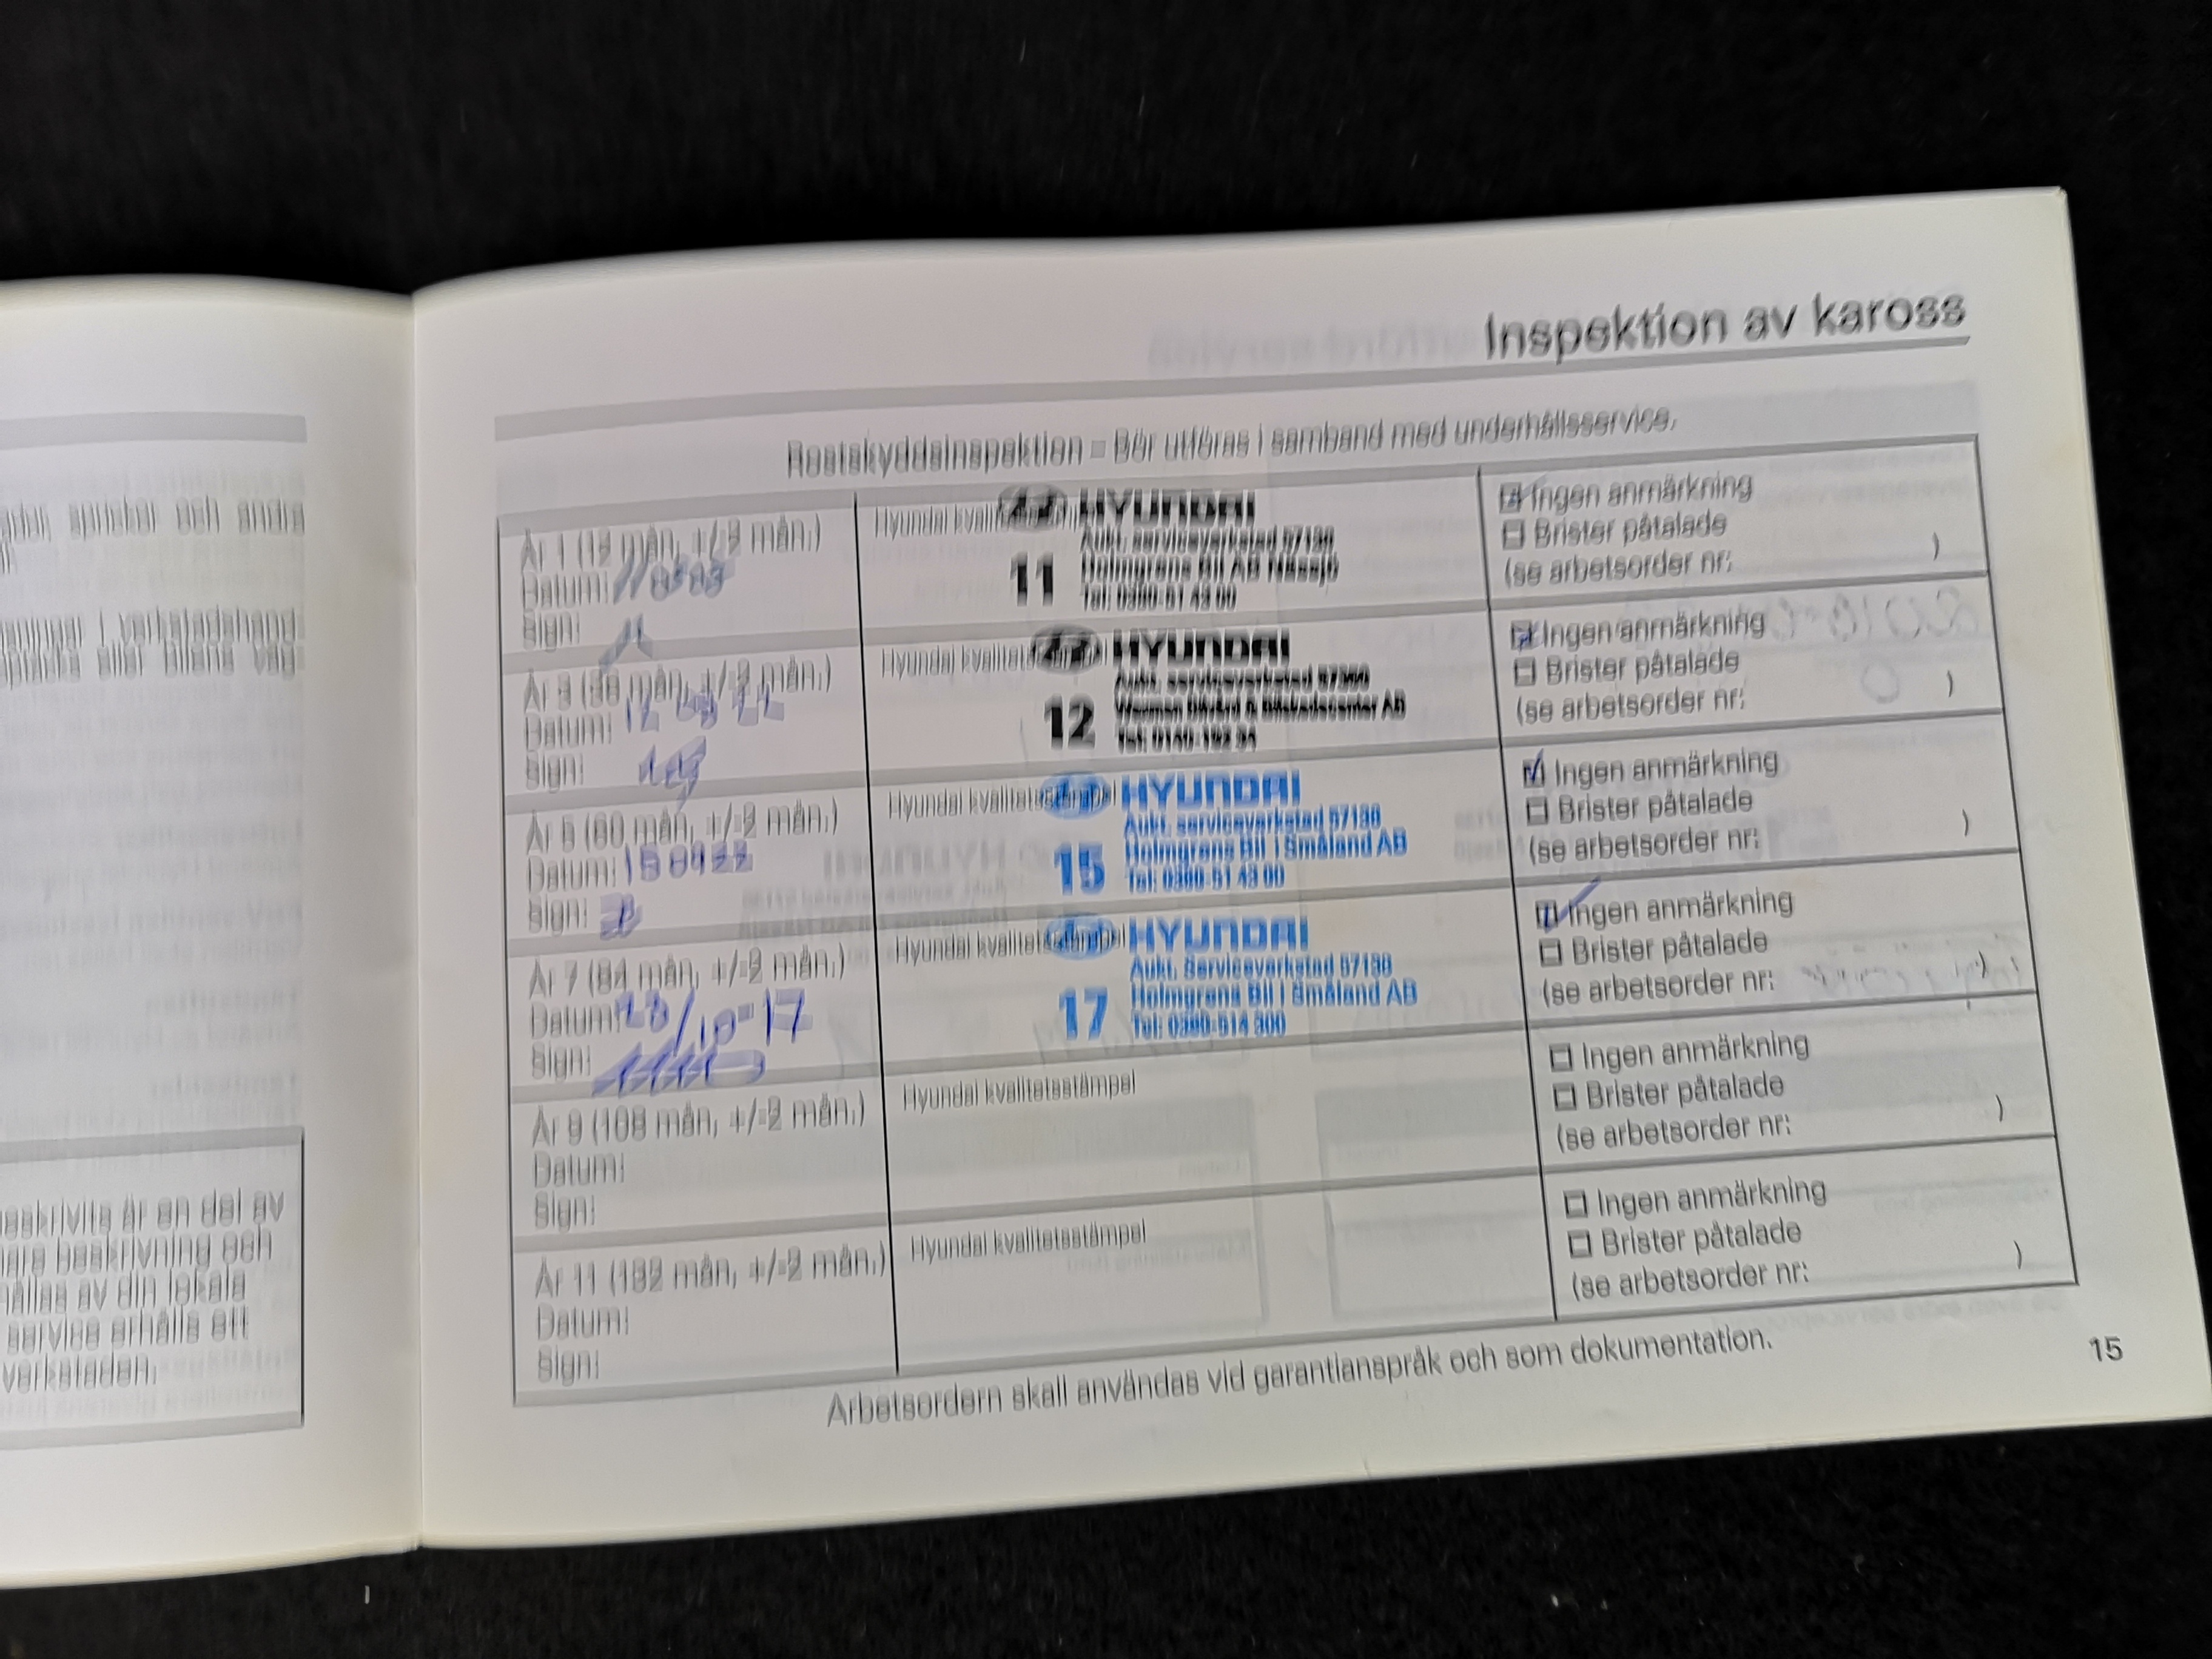 och andra
verkstadshand-
eller bilens väg-
beskrivits är en del av
beskrivning och
hållas av din lokala
service erhålls ett
verkstaden.
Inspektion av kaross
Rostskyddsinspektion - Bör utföras i samband med underhållsservice.
År 1 (12 mån, +/-2 mån.)
Datum:
Sign:
Hyundai
HYUNDAI
Aukt. serviceverkstad 57138
11 Holmgrens Bil AB Nässjö
Tel: 0380-51 43 00
Ingen anmärkning
Brister påtalade
(se arbetsorder nr: )
År 3 (36 mån, +/-2 mån.)
Datum:
Sign:
Hyundai
HYUNDAI
Aukt. serviceverkstad
12 & Bilskadecenter AB
Tel:
Ingen anmärkning
Brister påtalade
(se arbetsorder nr: )
År 5 (60 mån, +/-2 mån.)
Datum:
Sign:
Hyundai kvalitetsstämpel
HYUNDAI
Aukt. serviceverkstad 57138
15 Holmgrens Bil i Småland AB
Tel: 0380-51 43 00
Ingen anmärkning
Brister påtalade
(se arbetsorder nr: )
År 7 (84 mån, +/-2 mån.)
Datum: /10-17
Sign:
Hyundai kvalitetsstämpel
HYUNDAI
Aukt. Serviceverkstad 57138
17 Holmgrens Bil i Småland AB
Tel: 0380-514 300
Ingen anmärkning
Brister påtalade
(se arbetsorder nr: )
År 9 (108 mån, +/-2 mån.)
Datum:
Sign:
Hyundai kvalitetsstämpel
Ingen anmärkning
Brister påtalade
(se arbetsorder nr: )
År 11 (132 mån, +/-2 mån.)
Datum:
Sign:
Hyundai kvalitetsstämpel
Ingen anmärkning
Brister påtalade
(se arbetsorder nr: )
Arbetsordern skall användas vid garantianspråk och som dokumentation.
15